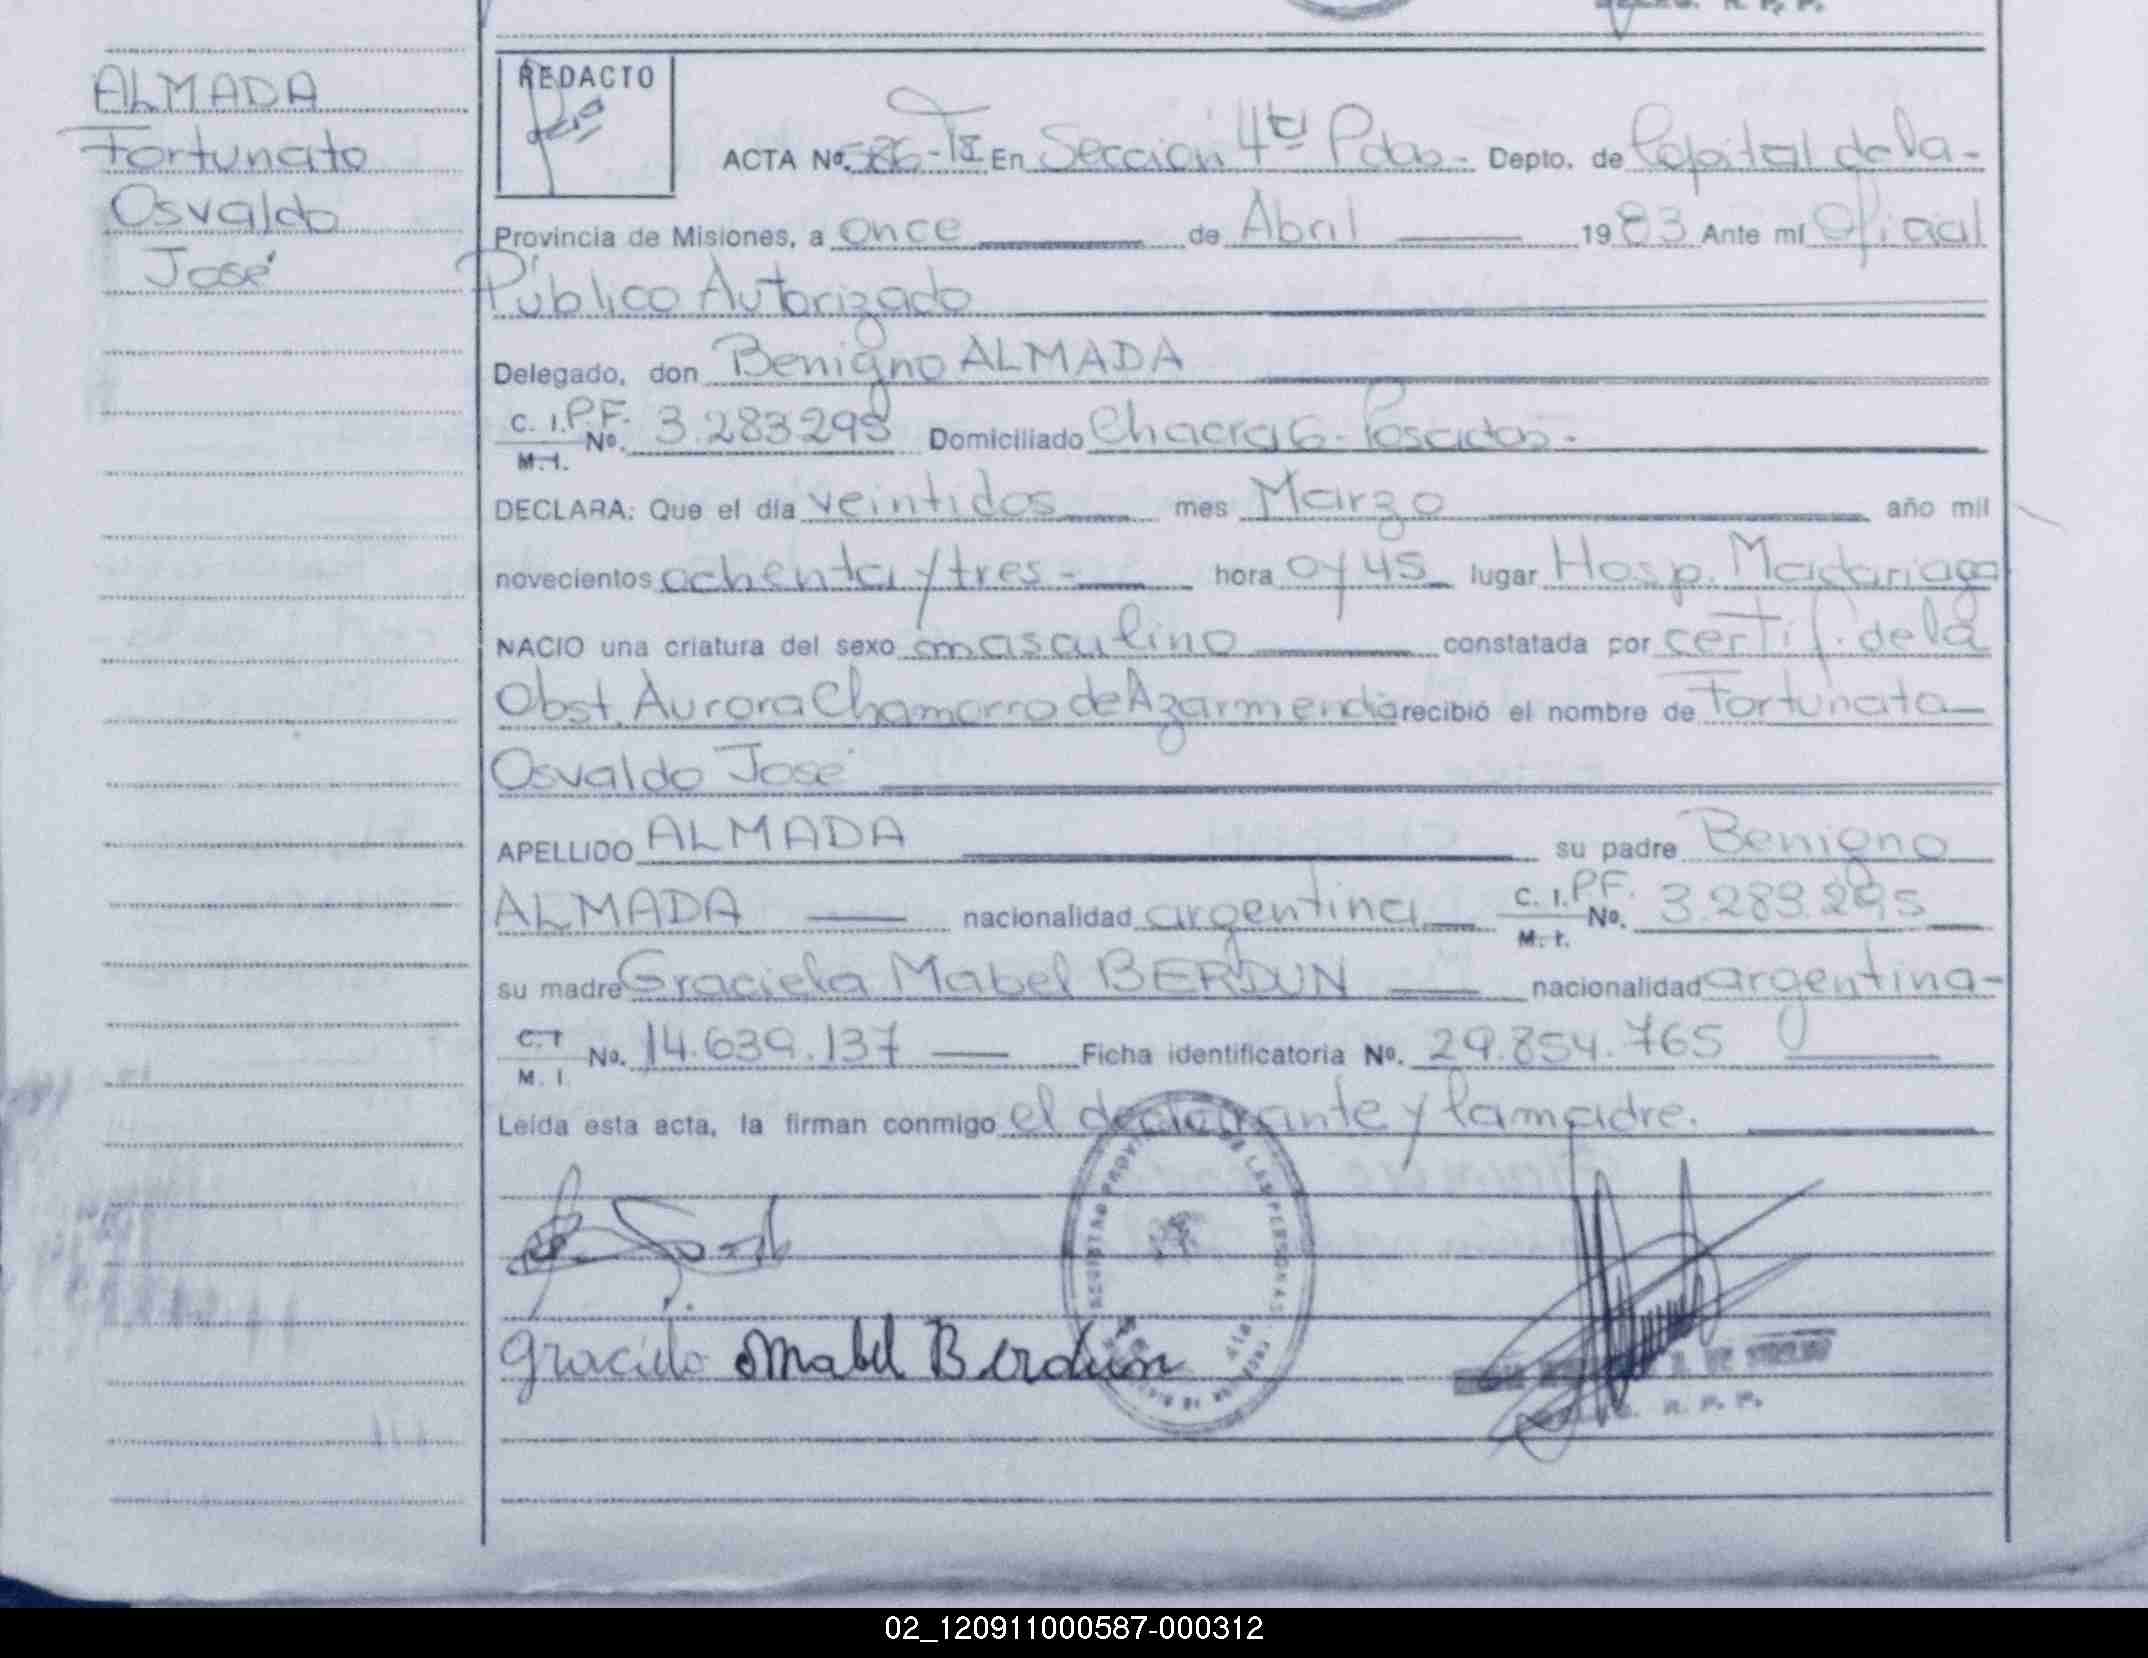 ALMADA
Fortunato
Osvaldo
José
REDACTO
ACTA No. 586-TI En Sección 4ta Pdas- Depto. de Capital de la-
Provincia de Misiones, a once de Abril 1983 Ante mí Oficial
Público Autorizado
Delegado, don Benigno ALMADA
C. I. P.F. No. 3.283.295 Domiciliado Chacra 6- Posadas-
M. I.
DECLARA: Que el día veintidos mes Marzo año mil
novecientos ochenta y tres- hora 0 y 45 lugar Hosp. Madariaga
NACIO una criatura del sexo masculino constatada por certif. de la
Obst. Aurora Chamorro de Azarmendia recibió el nombre de Fortunato
Osvaldo José
APELLIDO ALMADA su padre Benigno
ALMADA nacionalidad argentina C. I. P.F. No. 3.283.295
M. I.
su madre Graciela Mabel BERDUN nacionalidad argentina-
C. I No. 14.639.137 Ficha identificatoria No. 29.854.765
M. I
Leída esta acta, la firman conmigo el declarante y la madre.
Graciela Mabel Berdun
R. P. P.
02_120911000587-000312